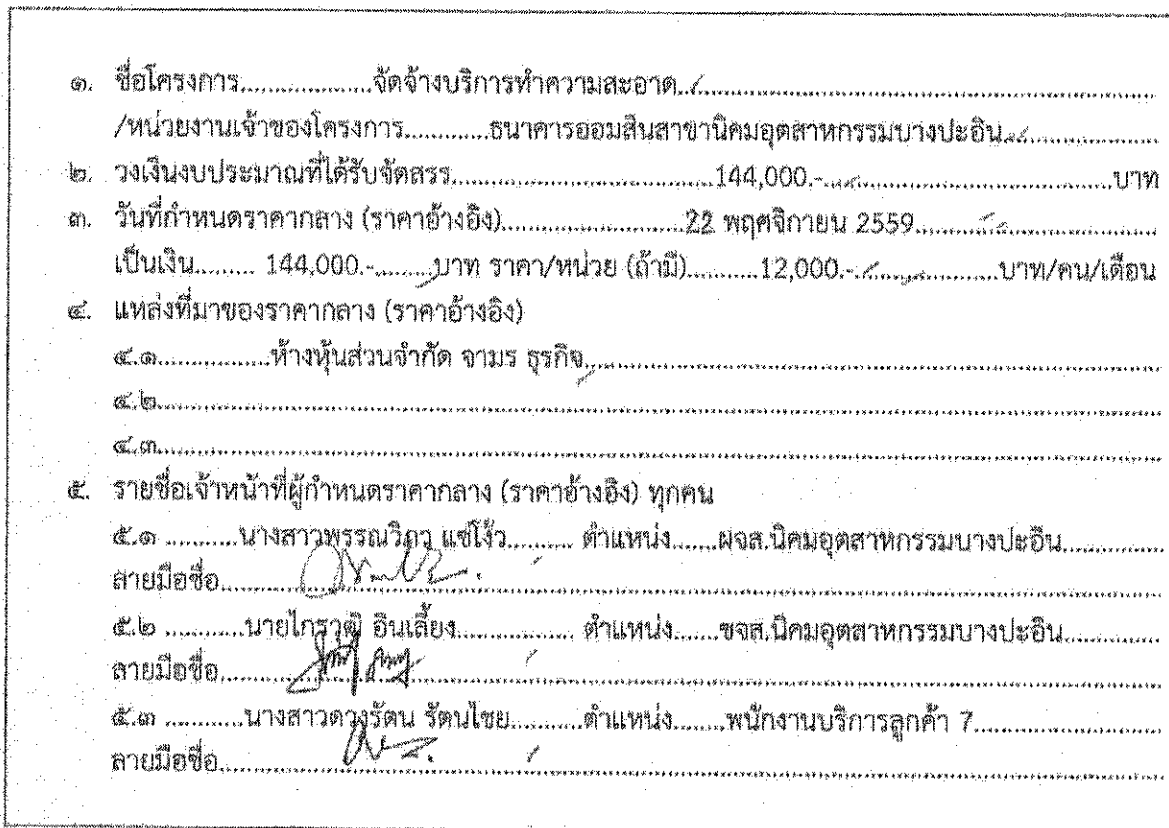 ๑. ชื่อโครงการ..................จัดจ้างบริการทำความสะอาด..........................
/หน่วยงานเจ้าของโครงการ............ธนาคารออมสินสาขานิคมอุตสาหกรรมบางปะอิน..................
๒. วงเงินงบประมาณที่ได้รับจัดสรร....................................144,000.-....................................บาท
๓. วันที่กำหนดราคากลาง (ราคาอ้างอิง)........................22 พฤศจิกายน 2559..............................
เป็นเงิน......... 144,000.-.........บาท ราคา/หน่วย (ถ้ามี)..........12,000.-..................บาท/คน/เดือน
๔. แหล่งที่มาของราคากลาง (ราคาอ้างอิง)
๔.๑................ห้างหุ้นส่วนจำกัด จามร ธุรกิจ....................................
๔.๒....................................
๔.๓....................................
๕. รายชื่อเจ้าหน้าที่ผู้กำหนดราคากลาง (ราคาอ้างอิง) ทุกคน
๕.๑ ...........นางสาวพรรณวิภา แซ่โง้ว.......... ตำแหน่ง.......ผจส.นิคมอุตสาหกรรมบางปะอิน..............
ลายมือชื่อ....................................
๕.๒ ............นายไกรวุฒิ อินเลี้ยง................ ตำแหน่ง.......ชจส.นิคมอุตสาหกรรมบางปะอิน..............
ลายมือชื่อ....................................
๕.๓ ............นางสาวดวงรัตน รัตนไชย...........ตำแหน่ง........พนักงานบริการลูกค้า 7..........................
ลายมือชื่อ....................................